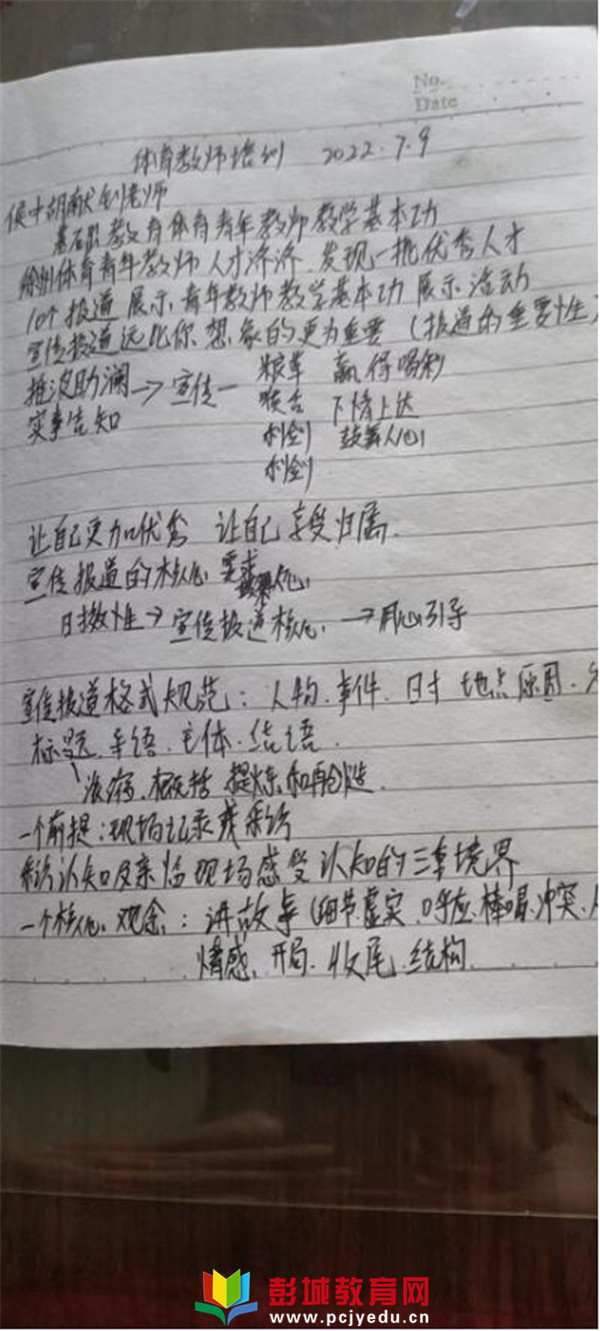 No.
Date
体育教师培训 2022.7.9
侯中胡献刽老师
基础教育体育青年教师教学基本功
徐州体育青年教师人才济济 发现一批优秀人才
10个报道 展示青年教师教学基本功展示活动
宣传报道远比你想象的更为重要 (报道的重要性)
推波助澜 → 宣传 — 粮草 赢得喝彩
实事告知 喉舌 下情上达
利剑 鼓舞人心
利剑
让自己更加优秀 让自己享受归属
宣传报道的核心 要求 人心
时效性 → 宣传报道核心 → 用心引导
宣传报道格式规范: 人物.事件.时 地点 原因.
标题.导语.主体.结语.
浓缩.概括 提炼.和再创造.
一个前提: 现场记录或采访
采访认知及亲临现场感受 认知的三重境界
一个核心观念: 讲故事 (细节.虚实.呼应.棒喝.冲突.
情感.开局.收尾.结构.
彭城教育网
www.pcjyedu.cn